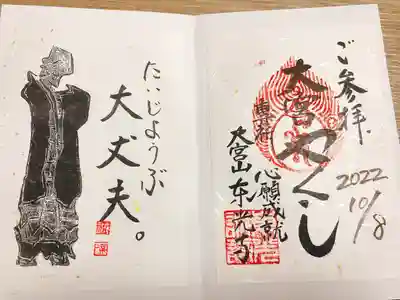 ご参拝
大宮やくし
心願成就
大宮山东光寺
2022
10/8
たいじようぶ
大丈夫。